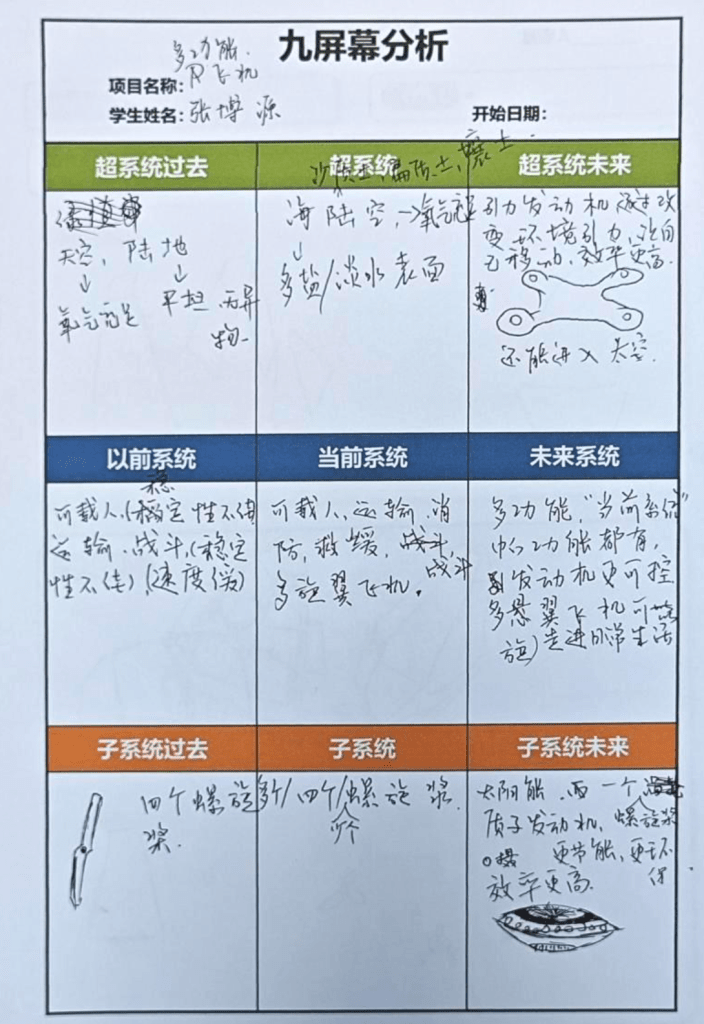 九屏幕分析
多功能
飞机
项目名称：
学生姓名：张博源
开始日期：
超系统过去
超系统
超系统未来
天空，陆地
↓ ↓
氧气充足 平坦 无异
物
沙质土，壤土
海 陆 空，氧气
↓
多盐/淡水 表面
引力发动机 通过改
变环境引力，让自
己移动，效率更高.
还能进入 太空.
以前系统
当前系统
未来系统
稳
可载人，(稳定性不佳
运输、战斗，(稳定
性不佳)，(速度缓)
可载人，运输，消
防，救缓，战斗，
战斗
多旋翼飞机.
多功能，“当前系统”
中的功能都有，
发动机更可控
多悬翼飞机可能
旋)走进日常生活
子系统过去
子系统
子系统未来
四个螺旋
桨.
多个/四个/螺旋 桨.
太阳能 一个
质子发动机，螺旋桨
更节能，更环
保
效率更高.